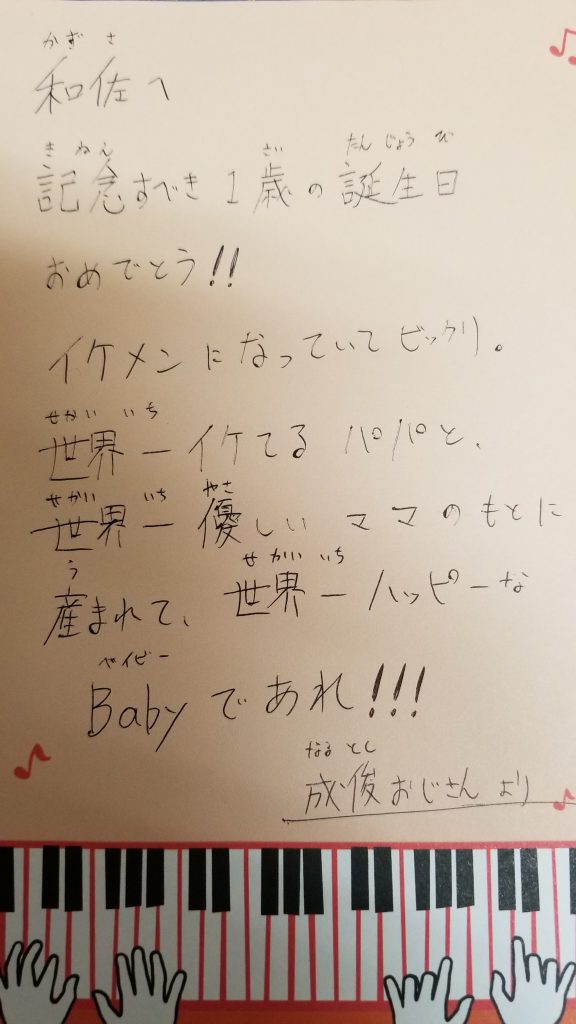 かずさ
和佐へ
きねん さい たんじょうび
記念すべき1歳の誕生日
おめでとう!!
イケメンになっていてビックリ。
せかいいち
世界一イケてるパパと、
せかいいち やさ
世界一優しいママのもとに
う せかいいち
産まれて、世界一ハッピーな
ベイビー
Babyであれ!!!
なるとし
成俊おじさんより